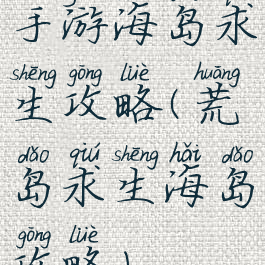 手游海岛求
shēng gōng lüè huāng
生攻略(荒
dǎo qiú shēng hǎi dǎo
岛求生海岛
gōng lüè
攻略)